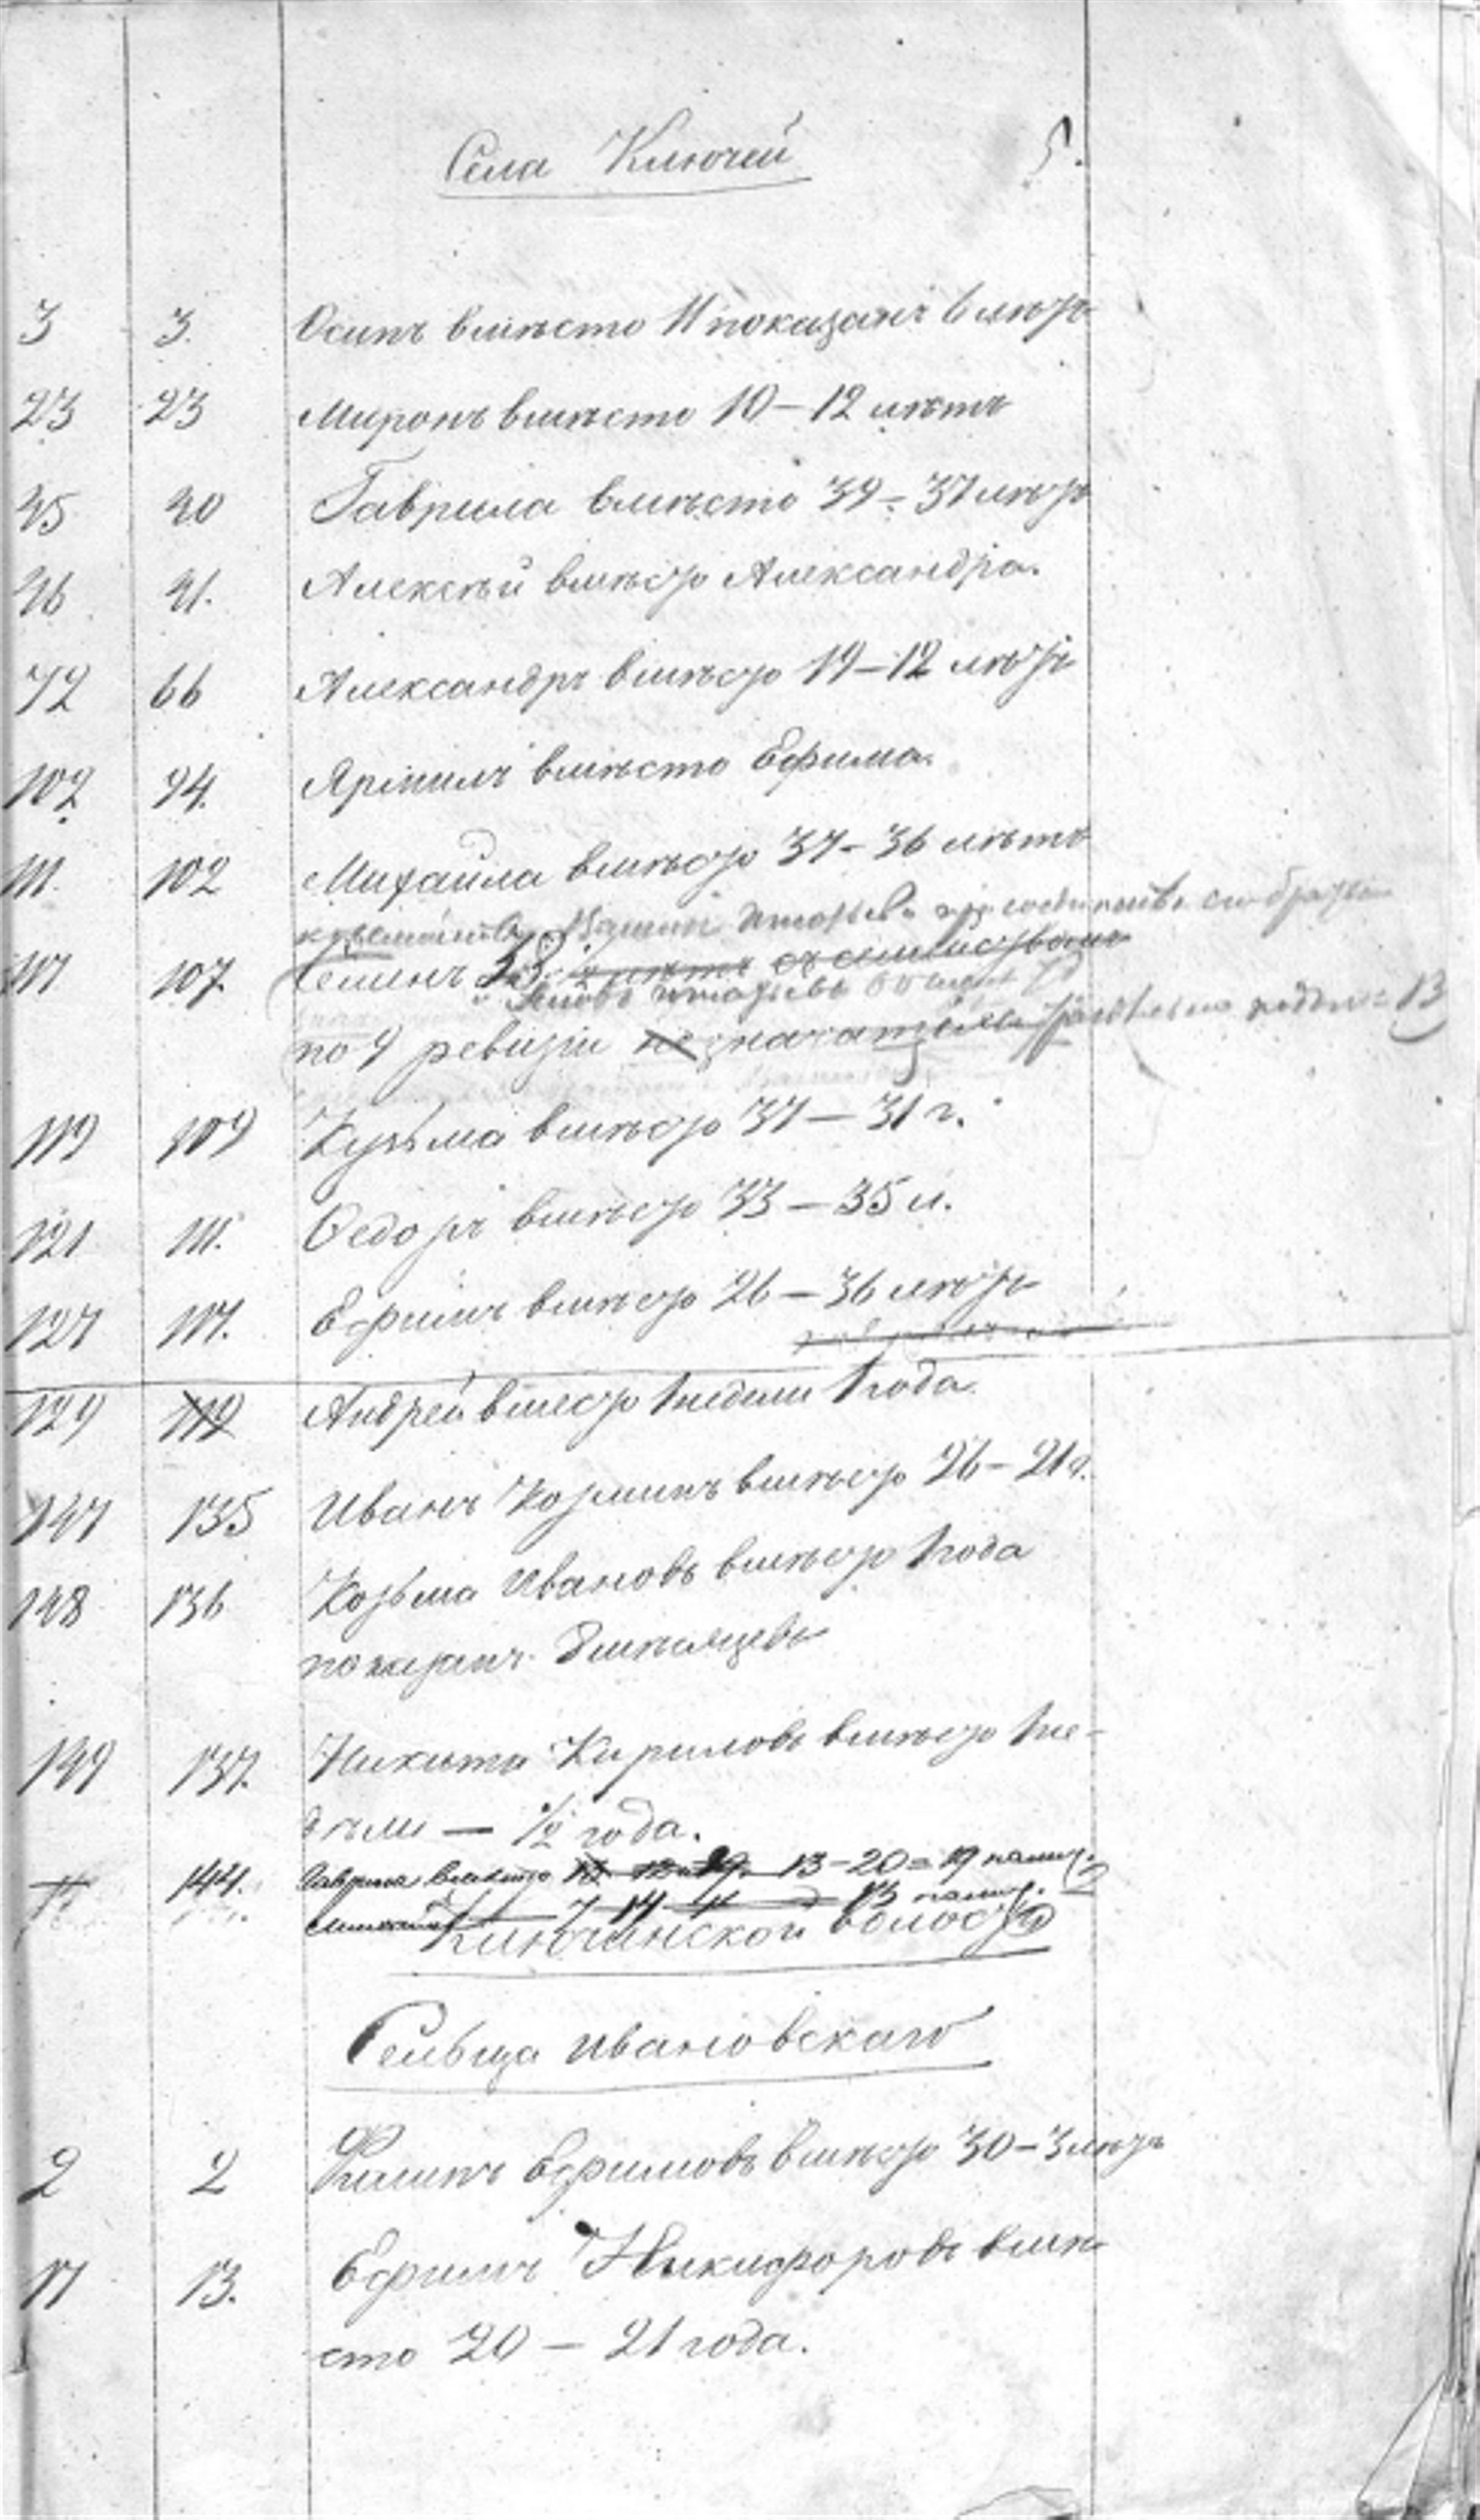 Села Ключей 5.
3 3. Осипъ вмѣсто 11 показанъ 6 лѣтъ
23 23 Миронъ вмѣсто 10 – 12 лѣтъ
45 40 Гаврила вмѣсто 39 – 37 лѣтъ
46 41. Алексѣй вмѣсто Александра.
72 66 Александръ вмѣсто 19 – 12 лѣтъ
102 94. вмѣсто Ефима.
111. 102 Михаила вмѣсто 37 – 36 лѣтъ
117 107. Семенъ 38 лѣтъ съ семействомъ
по 9 ревизіи не значатся
119 109 Кузьма вмѣсто 37 – 31 г.
121 111. Ѳедоръ вмѣсто 33 – 35 л.
127 117. Ефимъ вмѣсто 26 – 36 лѣтъ
129 119 Андрей вместо 1 недели 1 года
147 135 Иванъ Козминъ вмѣсто 26 – 21 г.
148 136 Козьма Ивановъ вмѣсто 1 года
показанъ 8 мѣсяцевъ
149 137. Никита Кириловъ вмѣсто 1 не-
дѣли — 1/2 года.
144. Гаврила вмѣсто 13 – 20 = 19
Ключинской волости
Сельца Ивановскаго
2 2 Филипъ Ефимовъ вмѣсто 30 – 3 лѣтъ
17 13. Ефимъ Никифоровъ вмѣ
сто 20 – 21 года.